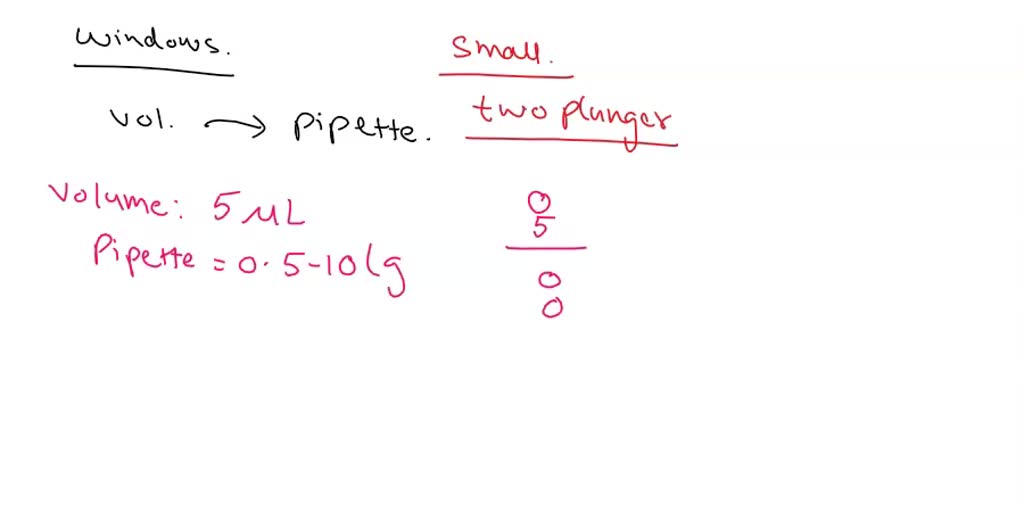 windows.
small.
vol. → pipette.
two plunger
Volume: 5 μL
Pipette = 0.5-10 lg
0
5
0
0